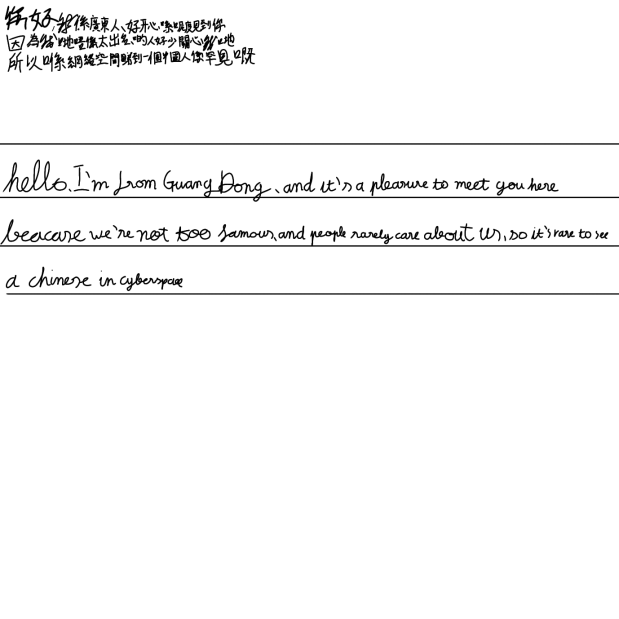 你好,我係廣東人、好開心喺呢度見到你
因為我哋唔係太出名、啲人好少關心我哋
所以喺網絡空間睇到一個中國人係罕見嘅
hello, I'm from GuangDong, and it's a pleasure to meet you here
beacase we're not too famous, and people rarely care about us, so it's rare to see
a chinese in cyberspace